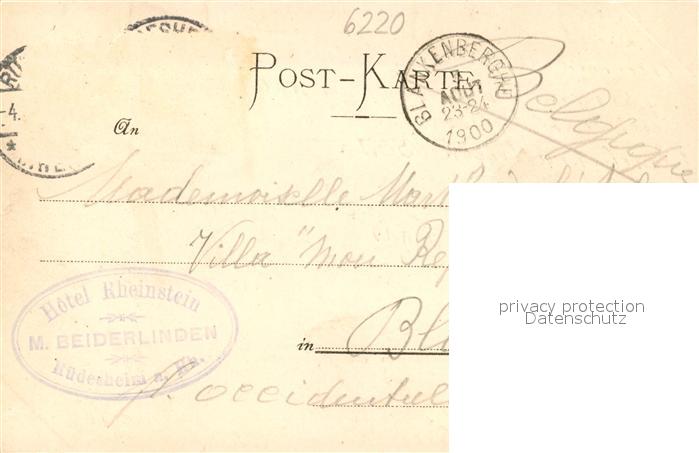 6220
POST-KARTE
BLANKENBERGHE
AOUT
23-24
1900
Belgique
An
Mademoiselle
Villa "Mon
in
Hôtel Rheinstein
M. BEIDERLINDEN
Rüdesheim a. Rh.
privacy protection
Datenschutz